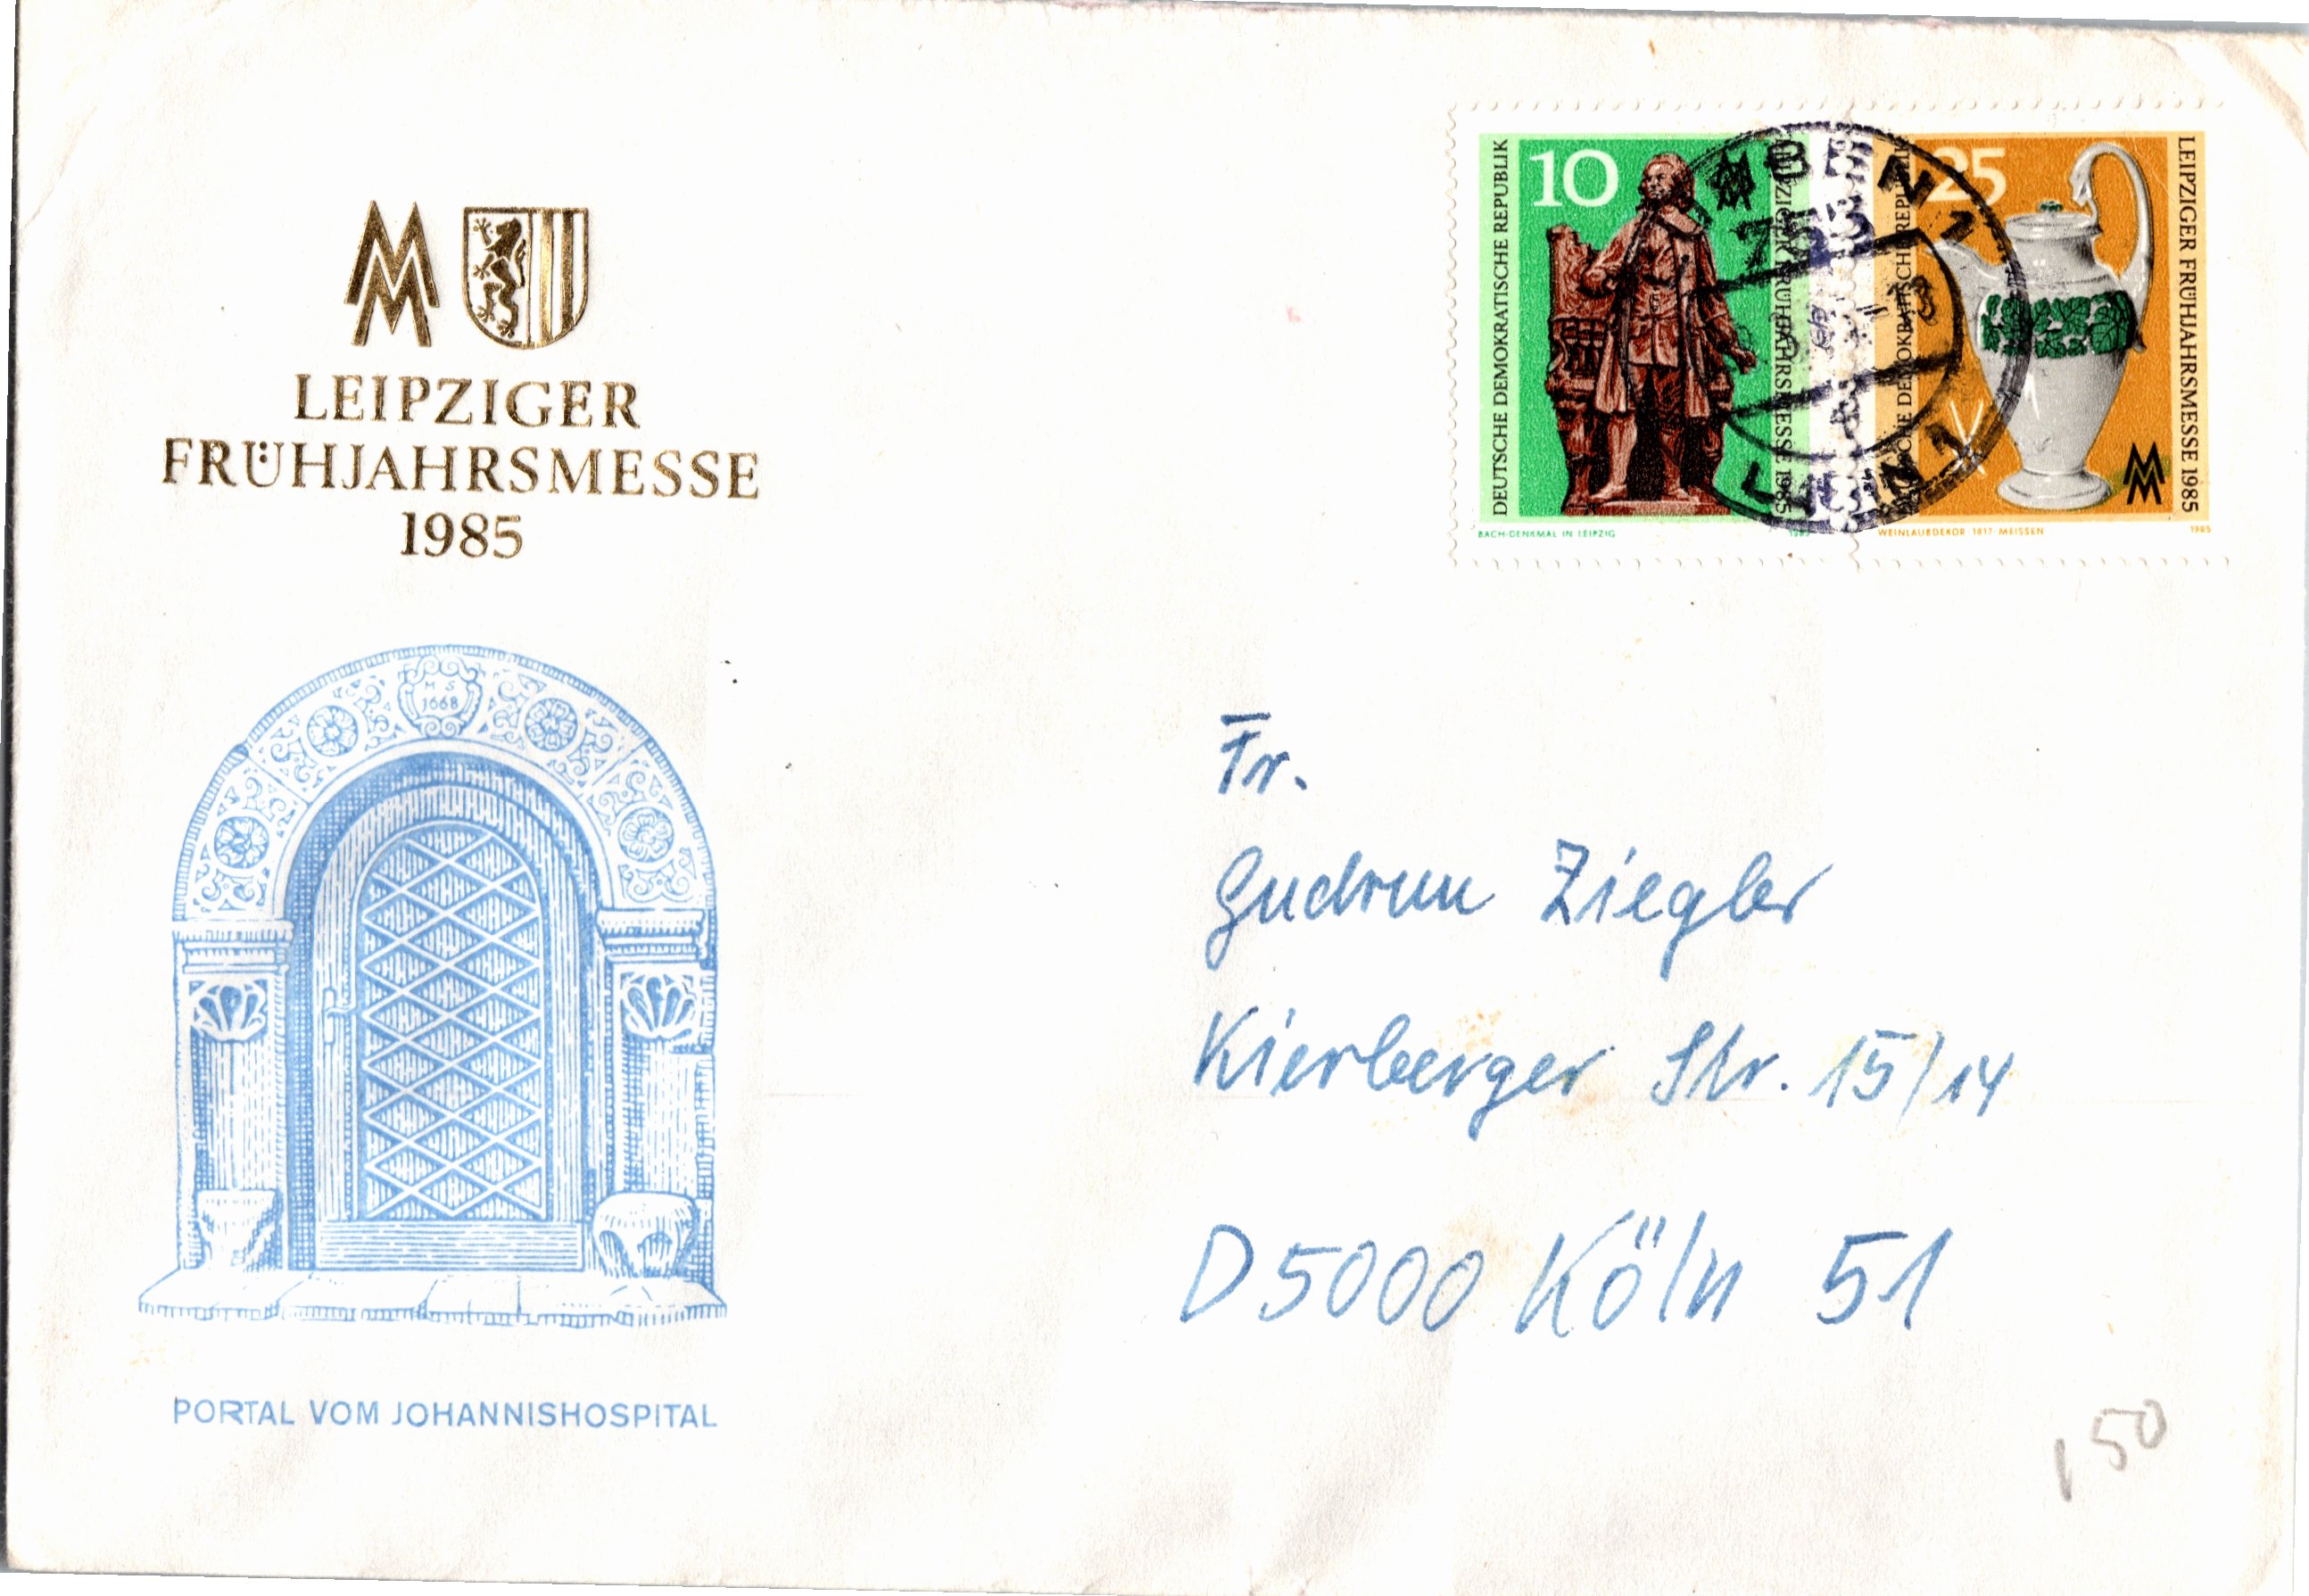 LEIPZIGER
FRÜHJAHRSMESSE
1985
H S
1668
PORTAL VOM JOHANNISHOSPITAL
10
DEUTSCHE DEMOKRATISCHE REPUBLIK
LEIPZIGER FRÜHJAHRSMESSE 1985
BACH-DENKMAL IN LEIPZIG 1985
25
DEUTSCHE DEMOKRATISCHE REPUBLIK
LEIPZIGER FRÜHJAHRSMESSE 1985
MM
WEINLAUBDEKOR · 1817 · MEISSEN 1985
753
Fr.
Gudrun Ziegler
Kierberger Str. 15/14
D 5000 Köln 51
150